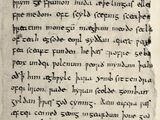 ge frunon huða æþelingas elle
fremedon. oft scyld scefing sceaþe
þreatum monegū mægþum meodo setl
of teah egsode eorl syððan ærest
fea sceaft funden he þæs frofre geba
weox under wolcnum weorð myndum þah
oð ꝥ him æghwylc þara ymb sittendra
ofer hron rade hyran scolde gomban
gyldan ꝥ wæs god cyning. ðæm eafera wæs
æfter cenned geong in geardum þone god